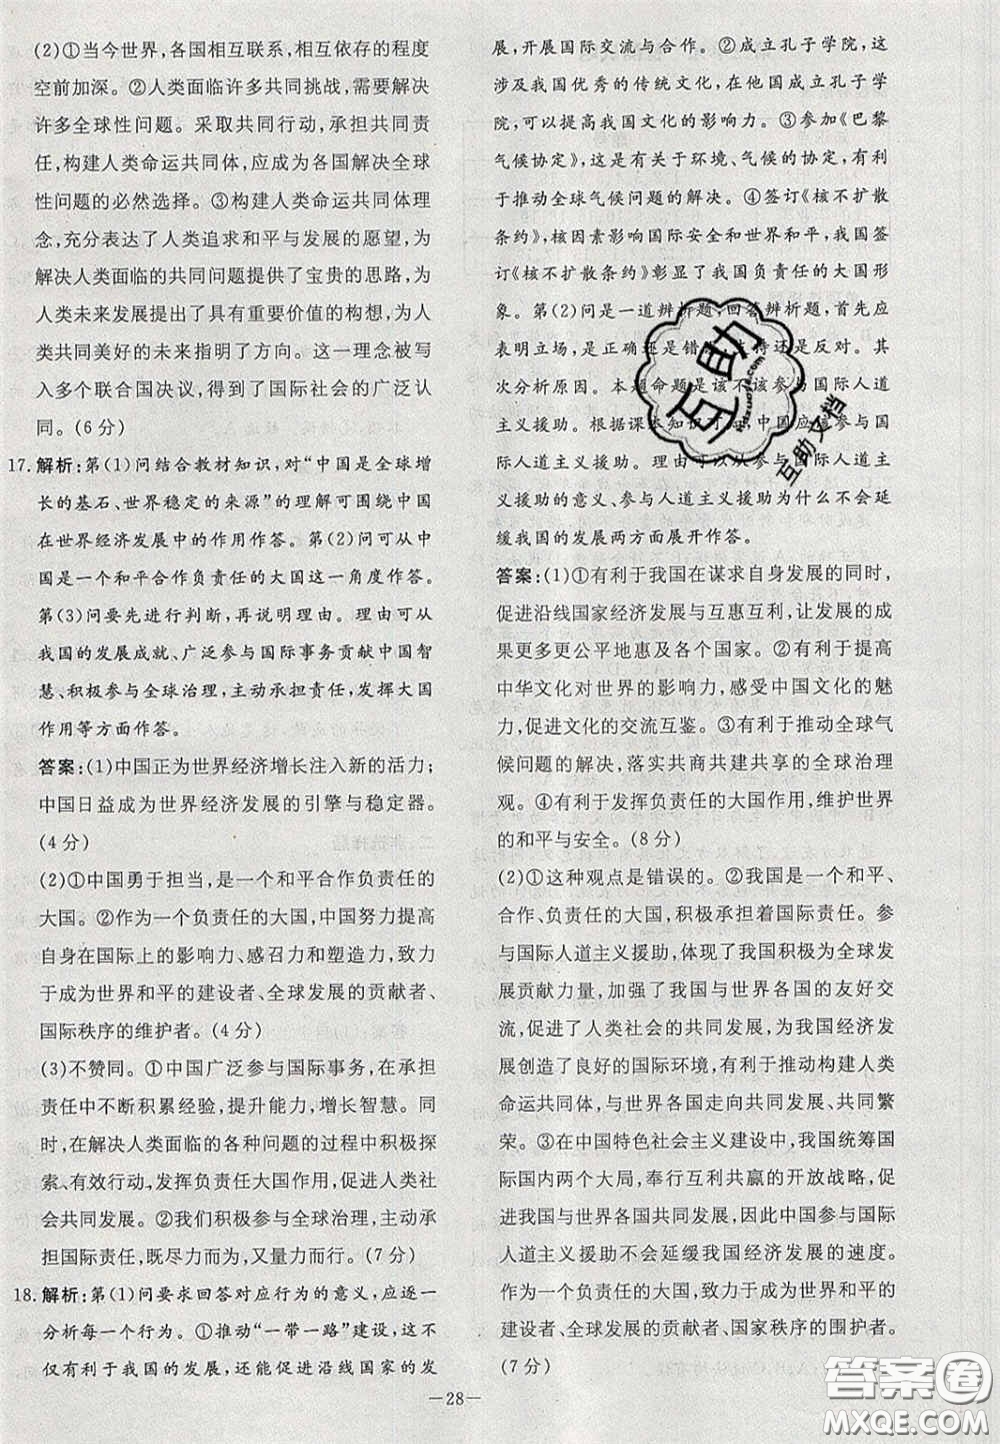 (2)①当今世界,各国相互联系,相互依存的程度
空前加深。②人类面临许多共同挑战,需要解决
许多全球性问题。采取共同行动,承担共同责
任,构建人类命运共同体,应成为各国解决全球
性问题的必然选择。③构建人类命运共同体理
念,充分表达了人类追求和平与发展的愿望,为
解决人类面临的共同问题提供了宝贵的思路,为
人类未来发展提出了具有重要价值的构想,为人
类共同美好的未来指明了方向。这一理念被写
入多个联合国决议,得到了国际社会的广泛认
同。(6分)
17.解析:第(1)问结合教材知识,对“中国是全球增
长的基石、世界稳定的来源”的理解可围绕中国
在世界经济发展中的作用作答。第(2)问可从中
国是一个和平合作负责任的大国这一角度作答。
第(3)问要先进行判断,再说明理由。理由可从
我国的发展成就、广泛参与国际事务贡献中国智
慧、积极参与全球治理,主动承担责任,发挥大国
作用等方面作答。
答案:(1)中国正为世界经济增长注入新的活力;
中国日益成为世界经济发展的引擎与稳定器。
(4分)
(2)①中国勇于担当,是一个和平合作负责任的
大国。②作为一个负责任的大国,中国努力提高
自身在国际上的影响力、感召力和塑造力,致力
于成为世界和平的建设者、全球发展的贡献者、
国际秩序的维护者。(4分)
(3)不赞同。①中国广泛参与国际事务,在承担
责任中不断积累经验,提升能力,增长智慧。同
时,在解决人类面临的各种问题的过程中积极探
索、有效行动,发挥负责任大国作用,促进人类社
会共同发展。②我们积极参与全球治理,主动承
担国际责任,既尽力而为,又量力而行。(7分)
18.解析:第(1)问要求回答对应行为的意义,应逐一
分析每一个行为。①推动“一带一路”建设,这不
仅有利于我国的发展,还能促进沿线国家的发
展,开展国际交流与合作。②成立孔子学院,这
涉及我国优秀的传统文化,在他国成立孔子学
院,可以提高我国文化的影响力。③参加《巴黎
气候协定》,这是关于环境、气候的协定,有利
于推动全球气候问题的解决。④签订《核不扩散
条约》,核因素影响国际安全和世界和平,我国签
订《核不扩散条约》彰显了我国负责任的大国形
象。第(2)问是一道辨析题,回答辨析题,首先应
表明立场,是正确还是错误,支持还是反对。其
次分析原因。本题命题是该不该参与国际人道
主义援助。根据课本知识可知,中国应该参与国
际人道主义援助。理由可以从参与国际人道主
义援助的意义、参与人道主义援助为什么不会延
缓我国的发展两方面展开作答。
答案:(1)①有利于我国在谋求自身发展的同时,
促进沿线国家经济发展与互惠互利,让发展的成
果更多更公平地惠及各个国家。②有利于提高
中华文化对世界的影响力,感受中国文化的魅
力,促进文化的交流互鉴。③有利于推动全球气
候问题的解决,落实共商共建共享的全球治理
观。④有利于发挥负责任的大国作用,维护世界
的和平与安全。(8分)
(2)①这种观点是错误的。②我国是一个和平、
合作、负责任的大国,积极承担着国际责任。参
与国际人道主义援助,体现了我国积极为全球发
展贡献力量,加强了我国与世界各国的友好交
流,促进了人类社会的共同发展,为我国经济发
展创造了良好的国际环境,有利于推动构建人类
命运共同体,与世界各国走向共同发展、共同繁
荣。③在中国特色社会主义建设中,我国统筹国
际国内两个大局,奉行互利共赢的开放战略,促
进我国与世界各国共同发展,因此中国参与国际
人道主义援助不会延缓我国经济发展的速度。
作为一个负责任的大国,我国致力于世界和平的
建设者、全球发展的贡献者、国家秩序的围护者。
(7分)
—28—
互助
互助文档
答案圈
MXQE.COM